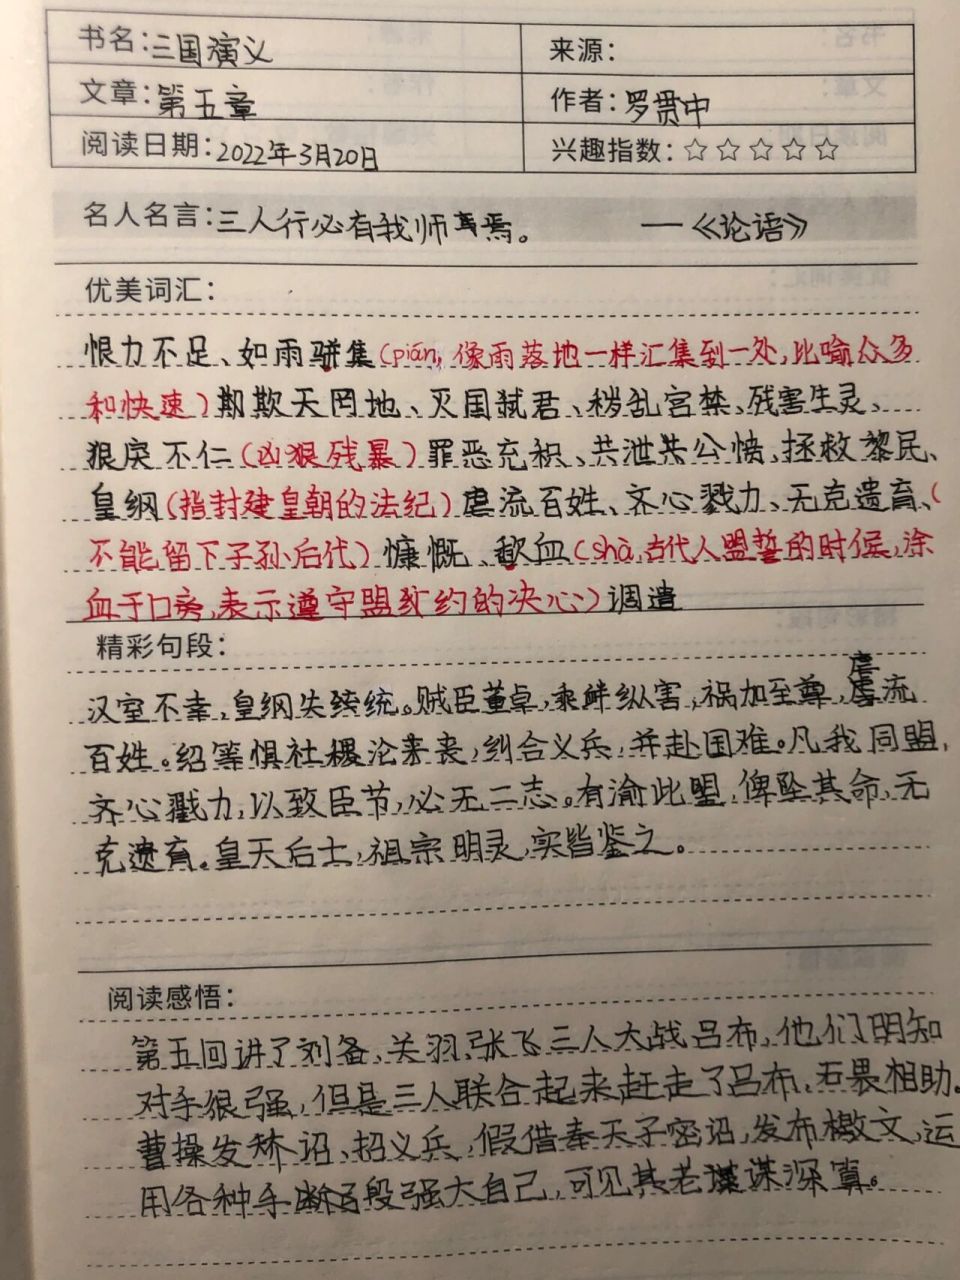 书名：三国演义 来源：
文章：第五章 作者：罗贯中
阅读日期：2022年3月20日 兴趣指数：☆☆☆☆☆
名人名言：三人行必有我师焉。 —《论语》
优美词汇：
恨力不足、如雨骈集（pián，像雨落地一样汇集到一处，比喻众多
和快速）欺欺天罔地、灭国弑君、秽乱宫禁、残害生灵、
狠戾不仁（凶狠残暴）罪恶充积、共泄共公愤、拯救黎民、
皇纲（指封建皇朝的法纪）虐流百姓、齐心戮力、无克遗育、（
不能留下子孙后代）慷慨、歃血（shà，古代人盟誓的时候，涂
血于口旁，表示遵守盟约的决心）调遣
精彩句段：
汉室不幸，皇纲失统。贼臣董卓，乘衅纵害，祸加至尊，虐流
百姓。绍等惧社稷沦丧，纠合义兵，并赴国难。凡我同盟，
齐心戮力，以致臣节，必无二志。有渝此盟，俾坠其命，无
克遗育。皇天后土，祖宗明灵，实皆鉴之。
阅读感悟：
第五回讲了刘备、关羽、张飞三人大战吕布，他们明知
对手很强，但是三人联合起来赶走了吕布，无畏相助。
曹操发矫诏、招义兵，假借奉天子密诏，发布檄文，运
用各种手段强大自己，可见其老谋深算。